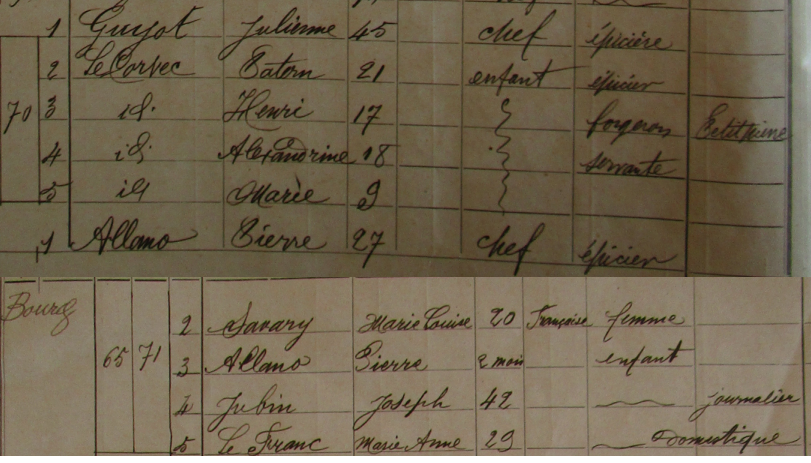 1 Guyot Julienne 45 chef épicière
2 Le Corvec Patern 21 enfant épicier
70 3 id. Henri 17 forgeron
4 id. Alexandrine 18 servante
5 id Marie 9
1 Allano Pierre 27 chef épicier
Bourg 2 Savary Marie Louise 20 Française femme
65 71 3 Allano Pierre 2 mois enfant
4 Jubin Joseph 42 journalier
5 Le Franc Marie Anne 29 Domestique